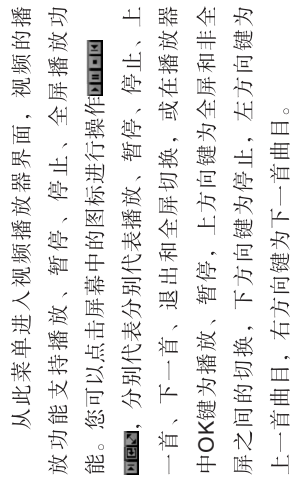 从此菜单进入视频播放器界面，视频的播
放功能支持播放、暂停、停止、全屏播放功
能。您可以点击屏幕中的图标进行操作
，分别代表分别代表播放、暂停、停止、上
一首、下一首、退出和全屏切换，或在播放器
中OK键为播放、暂停，上方向键为全屏和非全
屏之间的切换，下方向键为停止，左方向键为
上一首曲目，右方向键为下一首曲目。